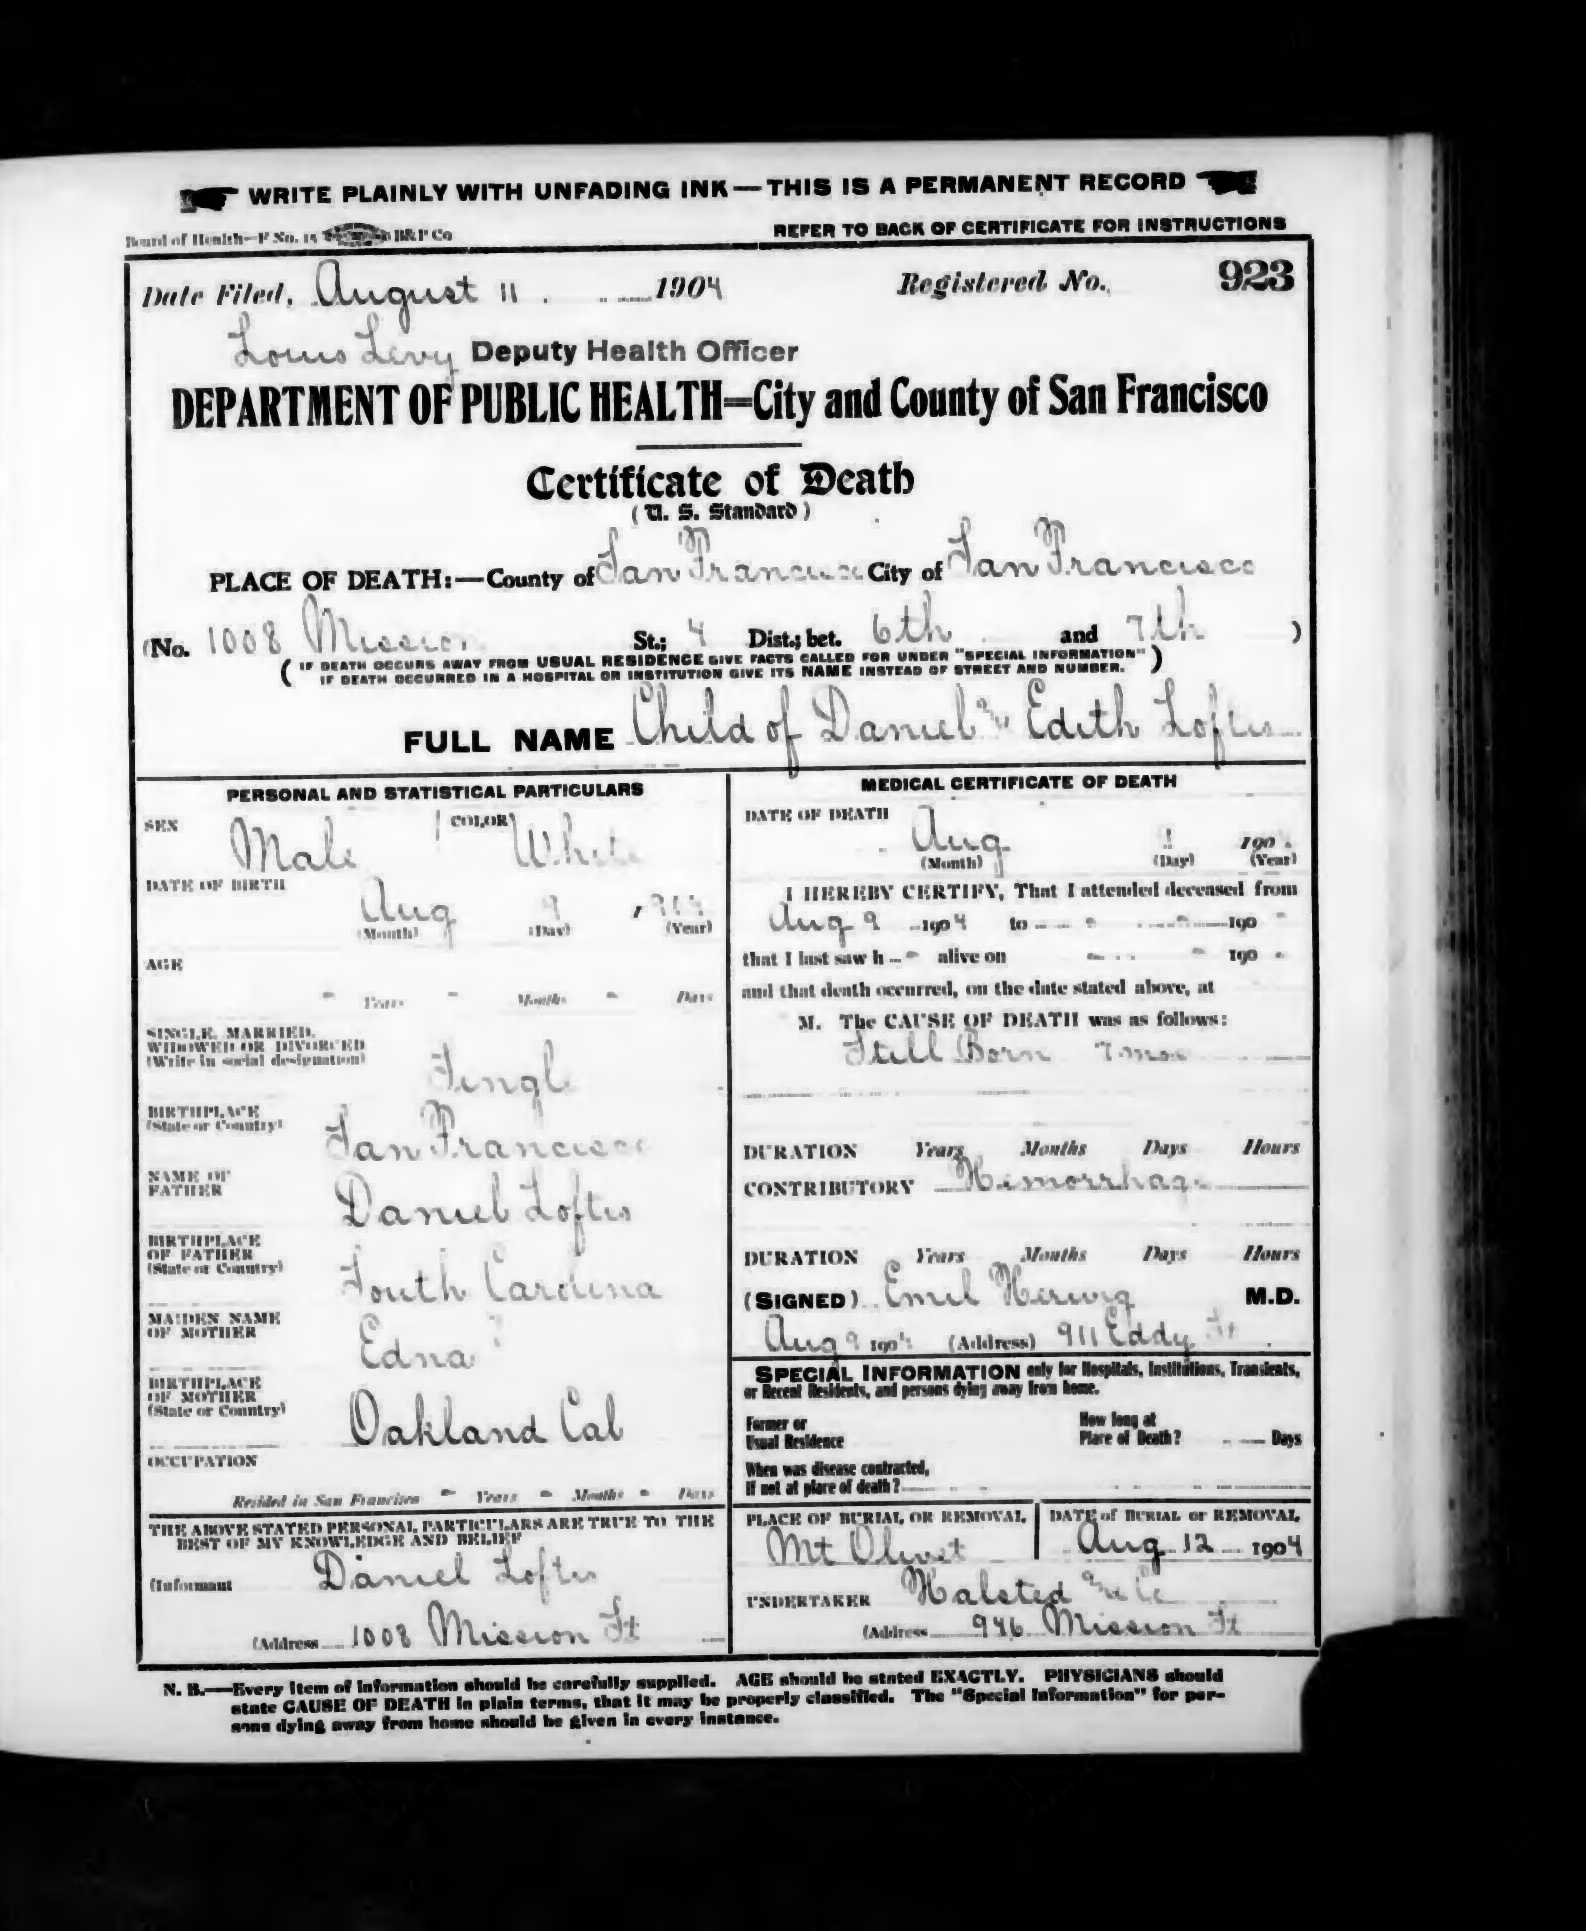 WRITE PLAINLY WITH UNFADING INK—THIS IS A PERMANENT RECORD
Board of Health—F No. 15 B&P Co
REFER TO BACK OF CERTIFICATE FOR INSTRUCTIONS
Date Filed, August 11 1904 Registered No. 923
Louis Levy Deputy Health Officer
DEPARTMENT OF PUBLIC HEALTH=City and County of San Francisco
Certificate of Death
(U. S. Standard)
PLACE OF DEATH:—County of San Francisco City of San Francisco
(No. 1008 Mission St.; 4 Dist.; bet. 6th and 7th )
( IF DEATH OCCURS AWAY FROM USUAL RESIDENCE GIVE FACTS CALLED FOR UNDER "SPECIAL INFORMATION" )
IF DEATH OCCURRED IN A HOSPITAL OR INSTITUTION GIVE ITS NAME INSTEAD OF STREET AND NUMBER.
FULL NAME Child of Daniel & Edith Loftis
PERSONAL AND STATISTICAL PARTICULARS
SEX Male COLOR White
DATE OF BIRTH
Aug 9 1904
(Month) (Day) (Year)
AGE
Years Months Days
SINGLE, MARRIED,
WIDOWED OR DIVORCED
(Write in social designation)
Single
BIRTHPLACE
(State or Country)
San Francisco
NAME OF
FATHER
Daniel Loftis
BIRTHPLACE
OF FATHER
(State or Country)
South Carolina
MAIDEN NAME
OF MOTHER
Edna ?
BIRTHPLACE
OF MOTHER
(State or Country)
Oakland Cal
OCCUPATION
Resided in San Francisco Years Months Days
THE ABOVE STATED PERSONAL PARTICULARS ARE TRUE TO THE
BEST OF MY KNOWLEDGE AND BELIEF
(Informant Daniel Loftis
(Address 1008 Mission St
MEDICAL CERTIFICATE OF DEATH
DATE OF DEATH
Aug 190
(Month) (Day) (Year)
I HEREBY CERTIFY, That I attended deceased from
Aug 9 1904 to 190
that I last saw h alive on 190
and that death occurred, on the date stated above, at
M. The CAUSE OF DEATH was as follows:
Still Born 7 mos
DURATION Years Months Days Hours
CONTRIBUTORY Hemorrhage
DURATION Years Months Days Hours
(SIGNED) Emil Herwig M.D.
Aug 9 1904 (Address) 911 Eddy St
SPECIAL INFORMATION only for Hospitals, Institutions, Transients,
or Recent Residents, and persons dying away from home.
Former or
Usual Residence
How long at
Place of Death? Days
When was disease contracted,
If not at place of death?
PLACE OF BURIAL OR REMOVAL
Mt Olivet
DATE of BURIAL or REMOVAL
Aug 12 1904
UNDERTAKER Halsted & Co
(Address 946 Mission St
N. B.—Every item of information should be carefully supplied. AGE should be stated EXACTLY. PHYSICIANS should
state CAUSE OF DEATH in plain terms, that it may be properly classified. The "Special Information" for per-
sons dying away from home should be given in every instance.